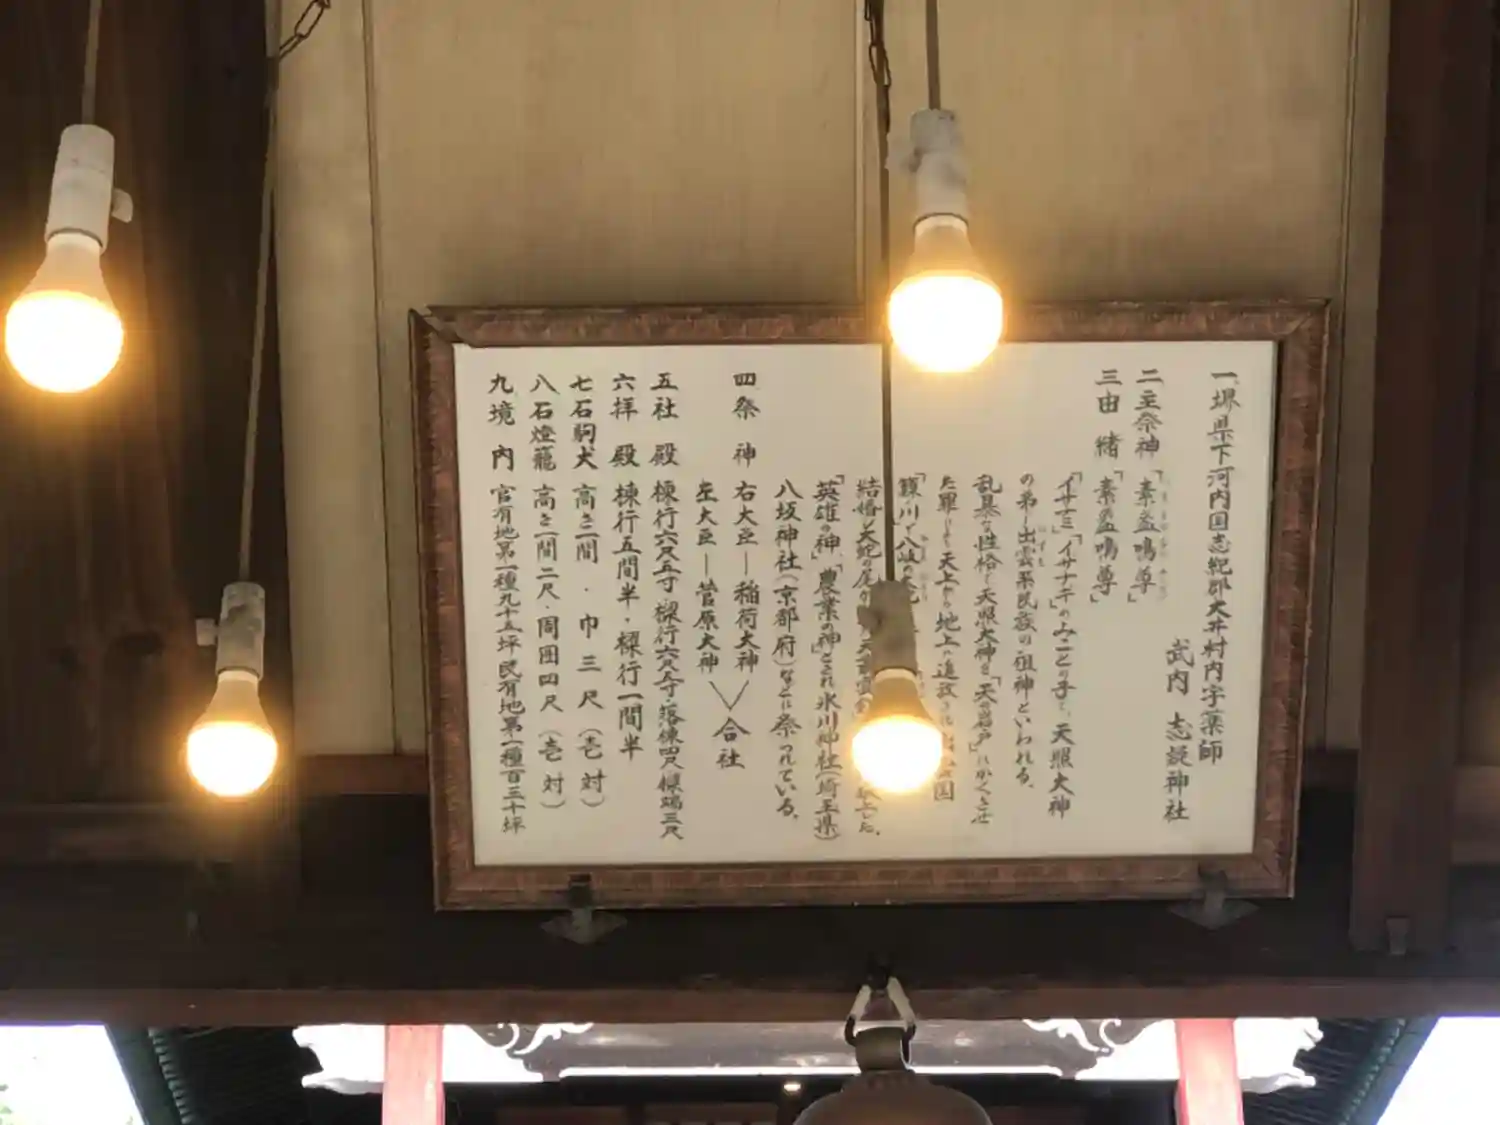 一、堺県下河内国志紀郡大井村内字薬師
武内 志疑神社
二主祭神「素盞嗚尊」
三由緒「素盞嗚尊」
「イサナミ」「イサナギ」のみことの子で、天照大神
の弟し出雲系民族の祖神といわれる。
乱暴な性格で天照大神を「天の岩戸」にかくさせ
た罪により天上から地上に追放され出雲国
「簸ノ川」で八岐の
結婚し大蛇の尾か
英雄の神」「農業の神」とされ氷川神社(埼玉県)
八坂神社(京都府)などに祭られている。
四祭神 右大臣―稲荷大神
左大臣―菅原大神
合社
五社殿 棟行六尺五寸・樑行六尺五寸・落棟四尺樑端三尺
六拝殿 棟行五間半・樑行一間半
七石駒犬 高さ二間・巾三尺(壱対)
八石燈籠 高さ一間二尺・周囲四尺(壱対)
九境内 官有地第一種九十五坪民有地第一種百三十坪